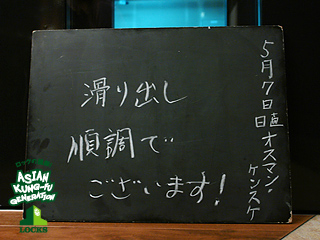 5月7日
日直 オスマン・
ケンスケ
滑り出し
順調で
ございます!
ロックンロール
ASIAN
KUNG-FU
GENERATION
LOCKS